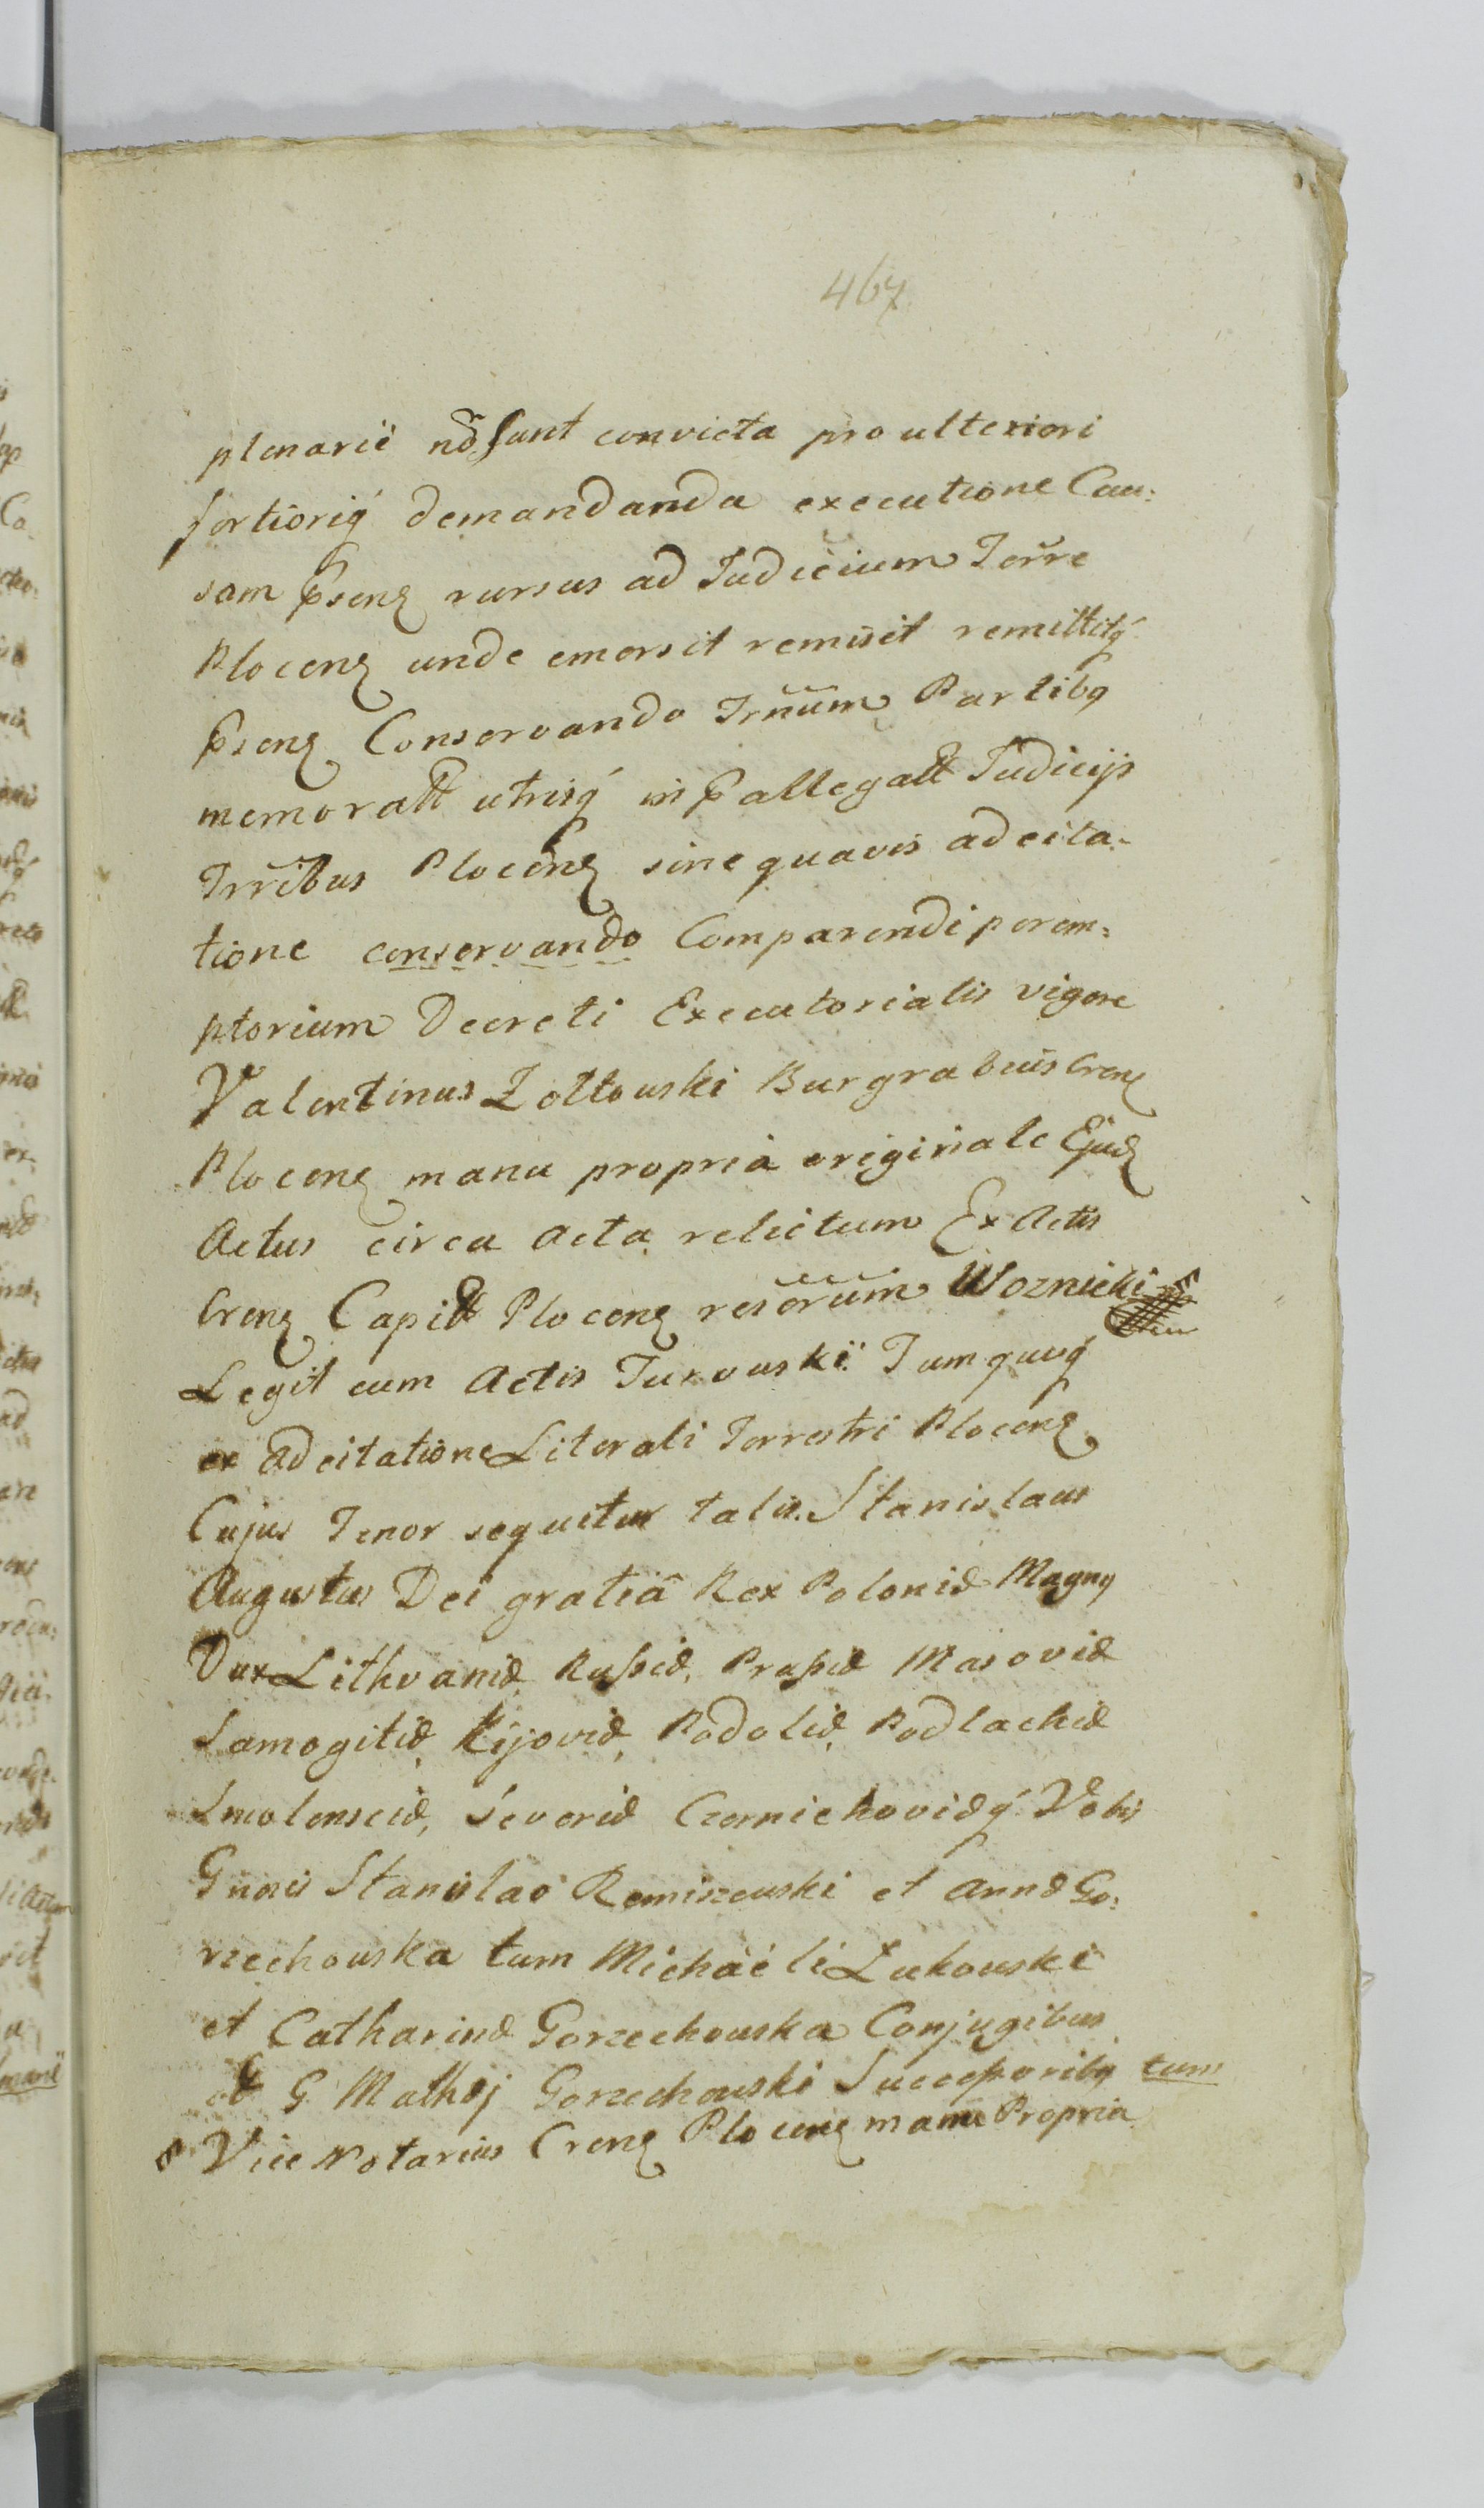 467
plenarie nd sunt convicta pro ulteriori
fortioriq́ demandanda executione Cau:
sam P̃senꝫ rursus ad Judicium Terre
Plocenꝫ unde emersit remisit remittitq́
P̃senꝫ Conservando Trnũm Partibꝫ
memoratt utrisq́ in P̃allegatt Judicijs
Trribus Plocenꝫ sine quavis adcita-
tione conservando Comparendi perem:
ptorium Decreti Executorialis vigore
Valentinus Zołtowski Burgrabius Crenꝫ
Plocenꝫ manu propria originale Ejudꝫ
Actus circa acta relictum Ex Actis
Crenꝫ Capitt Plocenꝫ resorũm Woznicki
Legit cum Actis Turowski. Tumquoq́
ex adcitatione Literali Terrestri Plocenꝫ
Cujus Tenor sequitur talis. Stanislaus
Augustus Dei gratiâ Rex Poloniæ Magnꝫ
Dux Lithvaniæ, Rußiæ, Prußiæ Masoviæ
Samogitiæ, Kijoviæ, Podoliæ, Podlachiæ
Smolensciæ, Severiæ Czerniechoviæq́ Vobis
Gnõsis Stanislao Remiszewski et Annæ Go:
rzechowska tum Michaéli Łukowski
et Catharinæ Gorzechowska Conjugibus
ol G. Mathej Gorzechowski Succeßoribꝫ tum
Vice Notarius Crenꝫ Plocenꝫ manu Propria